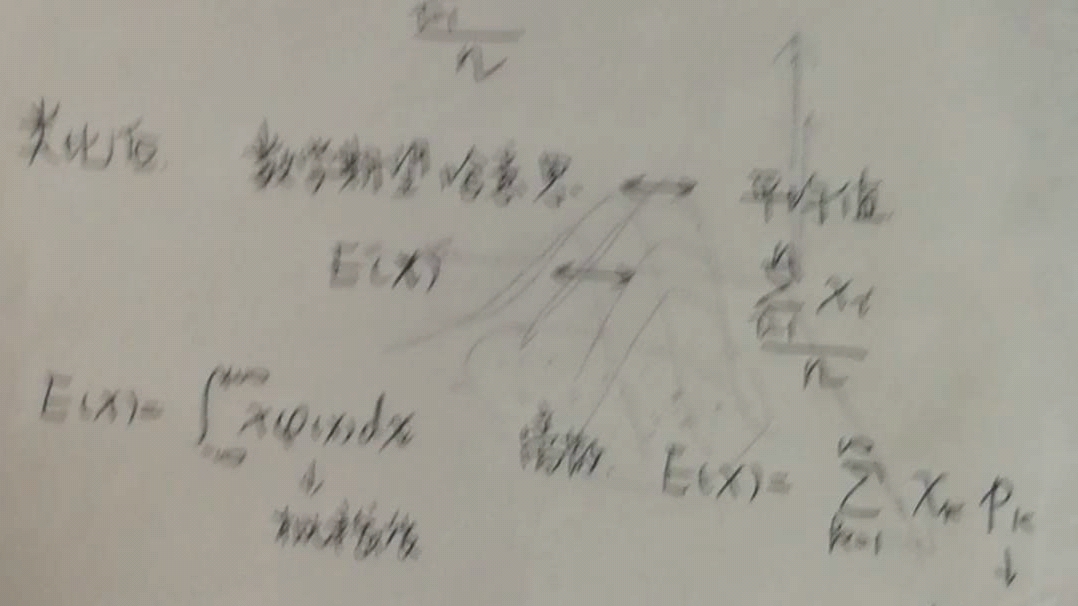 n
类比后 数学期望啥意思 ↔ 平均值
E(X) ↔ \frac{\sum_{i=1}^{n} x_i}{n}
E(X)= \int_{-\infty}^{+\infty} xφ(x)dx
离散 E(X)= \sum_{k=1}^{n} x_k p_k
↓ 概率密度 ↓